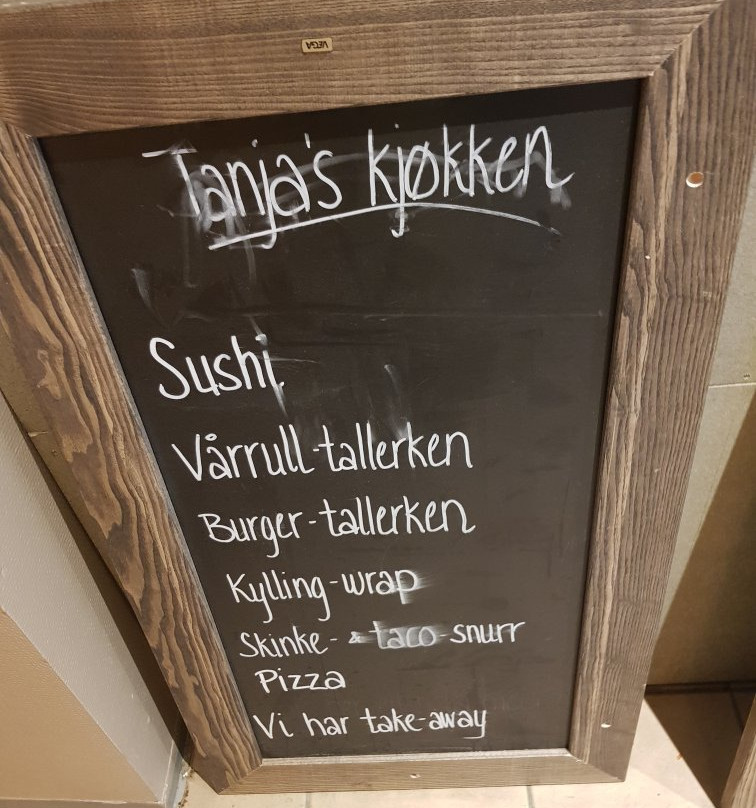 VEGA
Tanja's kjøkken
Sushi
Vårrull-tallerken
Burger-tallerken
Kylling-wrap
Skinke- & taco-snurr
Pizza
Vi har take-away